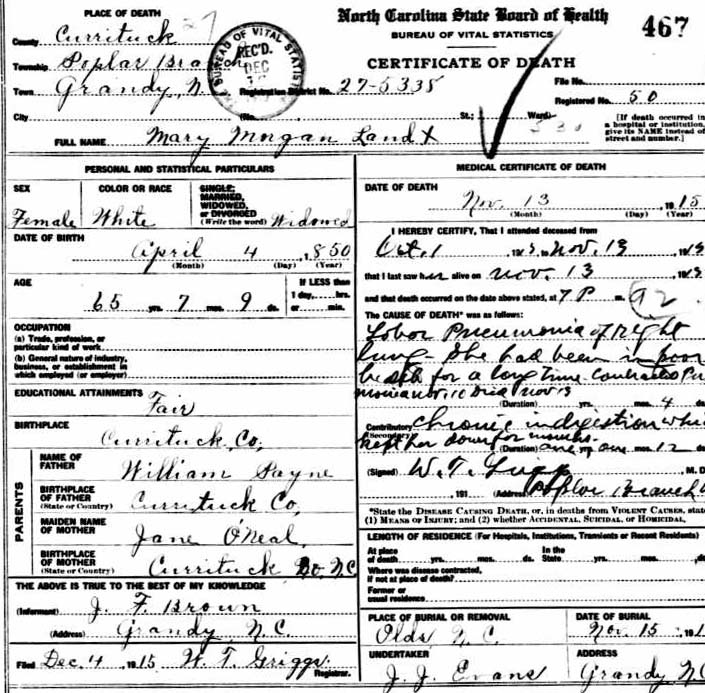 North Carolina State Board of Health
BUREAU OF VITAL STATISTICS
467
CERTIFICATE OF DEATH
PLACE OF DEATH
27
County Currituck
Township Poplar Branch
Town Grandy, N.
City
BUREAU OF VITAL STATISTICS
REC'D.
DEC
Registration District No. 27-5335
File No.
Registered No. 50
(No. St.; Ward)
[If death occurred in
a hospital or institution,
give its NAME instead of
street and number.]
FULL NAME Mary Morgan
PERSONAL AND STATISTICAL PARTICULARS
SEX
Female
COLOR OR RACE
White
SINGLE,
MARRIED,
WIDOWED,
or DIVORCED
(Write the word) Widowed
DATE OF BIRTH
April 4, 1850
(Month) (Day) (Year)
AGE
65 yrs. 7 mos. 9 ds.
If LESS than
1 day, hrs.
or min.
OCCUPATION
(a) Trade, profession, or
particular kind of work
(b) General nature of industry,
business, or establishment in
which employed (or employer)
EDUCATIONAL ATTAINMENTS
Fair
BIRTHPLACE
Currituck, Co,
PARENTS
NAME OF
FATHER
William Payne
BIRTHPLACE
OF FATHER
(State or Country)
Currituck Co,
MAIDEN NAME
OF MOTHER
Jane O'Neal,
BIRTHPLACE
OF MOTHER
(State or Country)
Currituck Co. N.C
THE ABOVE IS TRUE TO THE BEST OF MY KNOWLEDGE
(Informant) J. F. Brown
(Address) Grandy, N.C.
Filed Dec. 4 1915 W. T. Griggs
Registrar.
MEDICAL CERTIFICATE OF DEATH
DATE OF DEATH
Nov. 13, 1915
(Month) (Day) (Year)
I HEREBY CERTIFY, That I attended deceased from
Oct. 1 191 to Nov. 13 191
that I last saw her alive on Nov. 13 191
and that death occurred on the date above stated, at 7 P m. 92
The CAUSE OF DEATH* was as follows:
Lobar Pneumonia of right
lung - She had been in poor
health for a long time contracted
Nov. 10 Died Nov 13
(Duration) yrs. mos. 4 ds
Contributory Chronic indigestion
(Secondary) kept her down for months.
(Duration) yrs. mos. 12 ds
(Signed) W. T. M. D
191 (Address) Poplar Branch
*State the DISEASE CAUSING DEATH, or, in deaths from VIOLENT CAUSES, state
(1) MEANS OF INJURY; and (2) whether ACCIDENTAL, SUICIDAL, or HOMICIDAL.
LENGTH OF RESIDENCE (For Hospitals, Institutions, Transients or Recent Residents)
At place
of death yrs. mos. ds.
In the
State yrs. mos. ds
Where was disease contracted,
if not at place of death?
Former or
usual residence
PLACE OF BURIAL OR REMOVAL
Olds N.C.
DATE OF BURIAL
Nov. 15 191
UNDERTAKER
J. J. Evans
ADDRESS
Grandy N.C